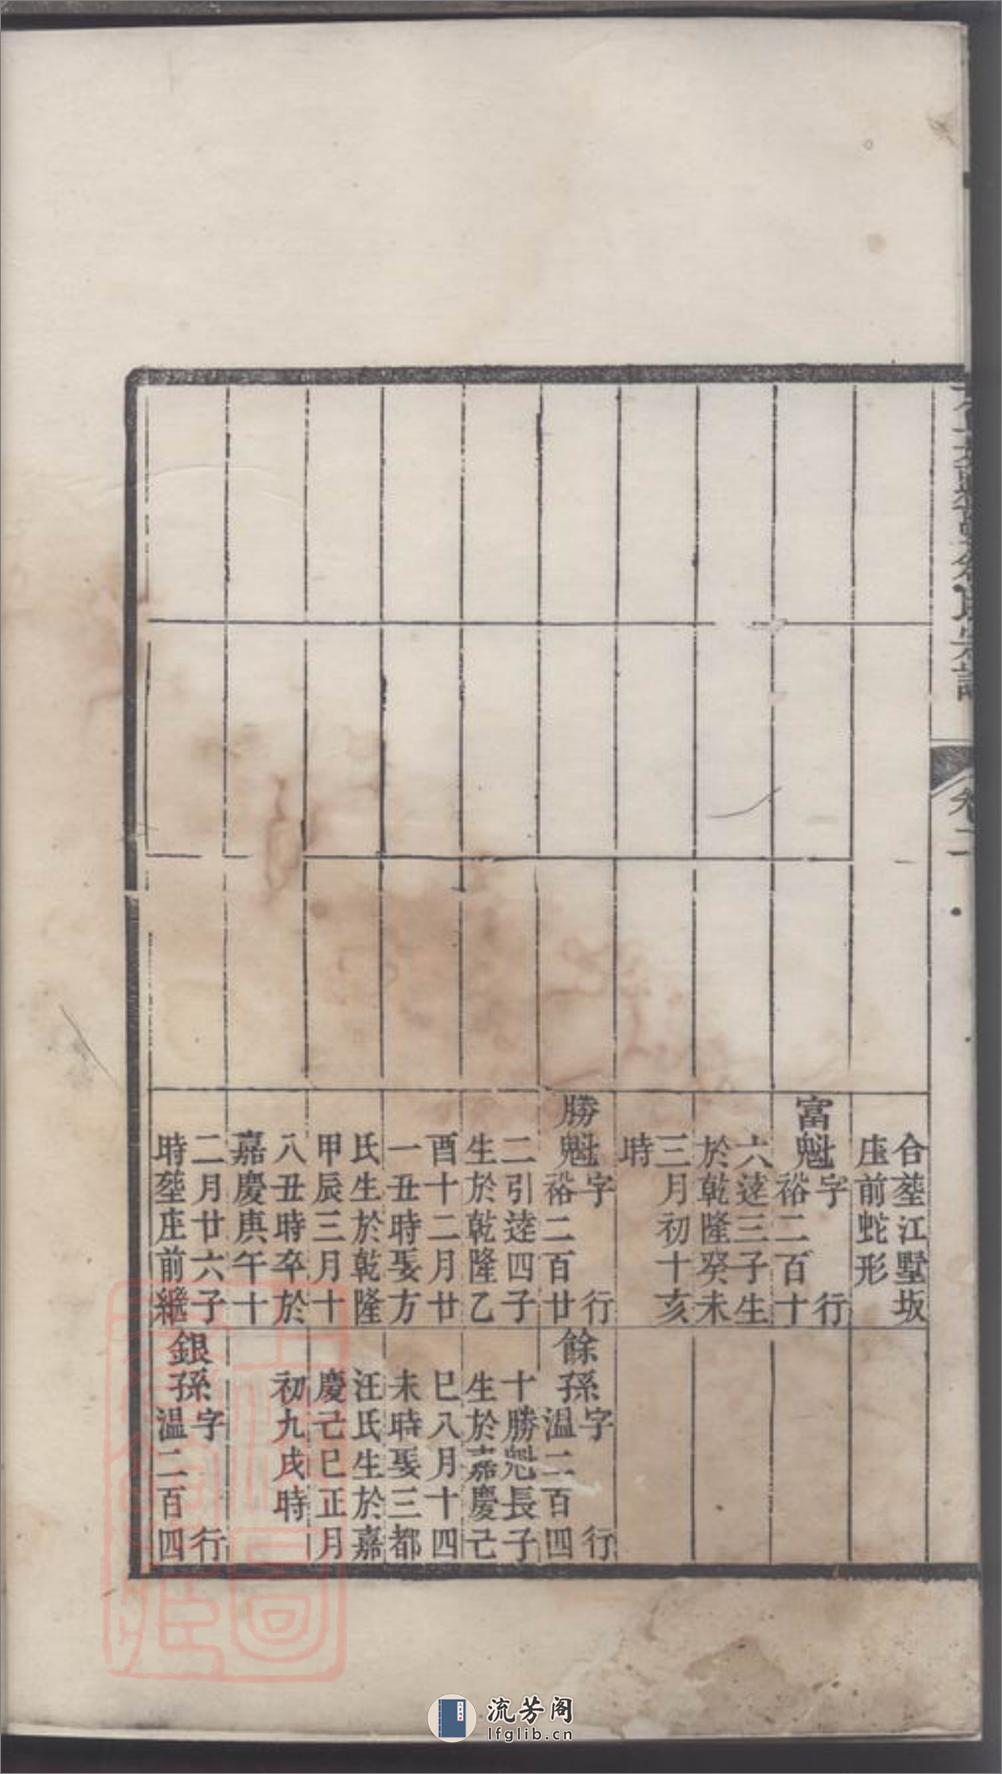 氏宗譜
卷二
合塟江墅坂
庄前蛇形
富魁字　行
裕二百十
六逵三子生
於乾隆癸未
三月初十亥
時
勝魁字　行
裕二百廿
二引逵四子
生於乾隆乙
酉十二月廿
一丑時娶方
氏生於乾隆
甲辰三月十
八丑時卒於
嘉慶庚午十
二月廿六子
時塟庄前繼
餘孫字　行
温二百四
十勝魁長子
生於嘉慶己
巳八月十四
未時娶三都
汪氏生於嘉
慶己巳正月
初九戌時
銀孫字　行
温二百四
流芳阁
lfglib.cn